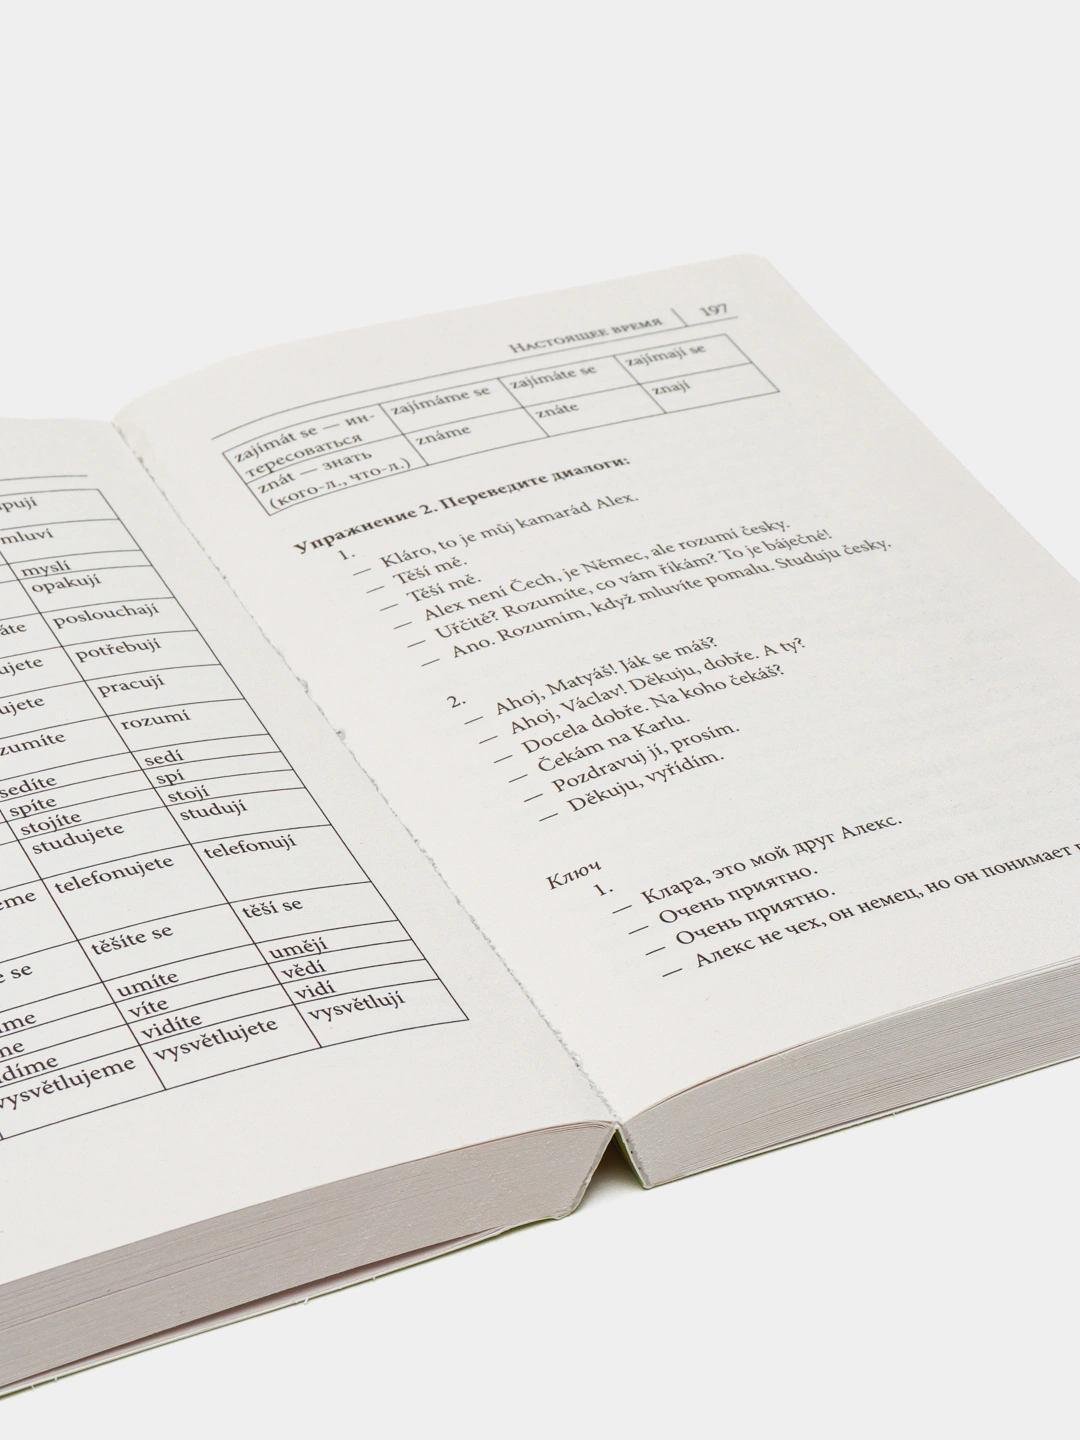 opují
mluví
myslí
opakují
áte poslouchají
ujete potřebují
ujete pracují
zumíte rozumí
sedíte sedí
spíte spí
stojíte stojí
studujete studují
eme telefonujete telefonují
e se těšíte se těší se
íme umíte umějí
me víte vědí
díme vidíte vidí
vysvětlujeme vysvětlujete vysvětlují
Настоящее время 197
zajímát se — ин- zajímáme se zajímáte se zajímají se
тересоваться
znát — знать známe znáte znají
(кого-л., что-л.)
Упражнение 2. Переведите диалоги:
1. — Kláro, to je můj kamarád Alex.
— Těší mě.
— Těší mě.
— Alex není Čech, je Němec, ale rozumí česky.
— Uřčitě? Rozumíte, co vám říkám? To je báječné!
— Ano. Rozumím, když mluvíte pomalu. Studuju česky.
2. — Ahoj, Matyáš! Ják se máš?
— Ahoj, Václav! Děkuju, dobře. A ty?
— Docela dobře. Na koho čekáš?
— Čekám na Karlu.
— Pozdravuj jí, prosím.
— Děkuju, vyřídím.
Ключ
1. — Клара, это мой друг Алекс.
— Очень приятно.
— Очень приятно.
— Алекс не чех, он немец, но он понимает